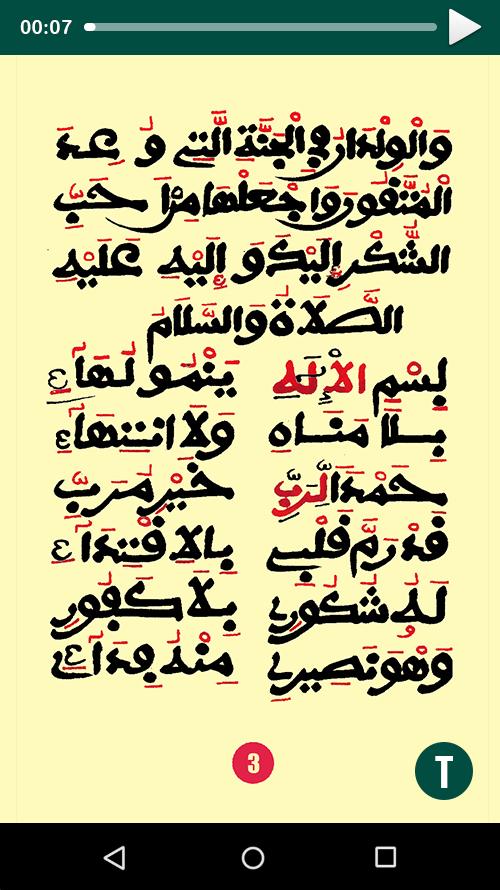 00:07
والولدان في الجنة التي وعد
المتقون واجعلها من أحب
الشكر إليك وإليه عليه
الصلاة والسلام
بسم الإله ينمو لهاء
بلا مناه ولا انتهاء
حمد الرب خير مرب
قد رم قلبي بالاقتداء
له شكوري بلا كفور
وهو نصيري منه فداء
3
T